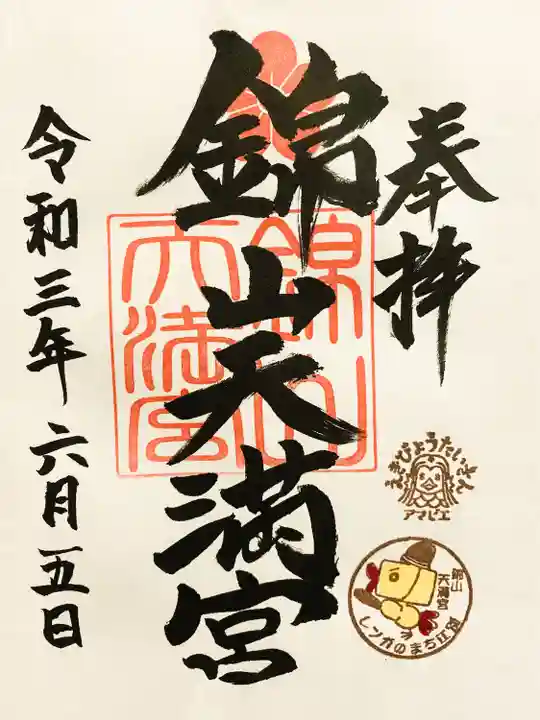 奉拝
錦山天満宮
錦山天満宮
令和三年六月五日
えきびょうたいさん
アマビエ
錦山
天満宮
レンガのまち江別